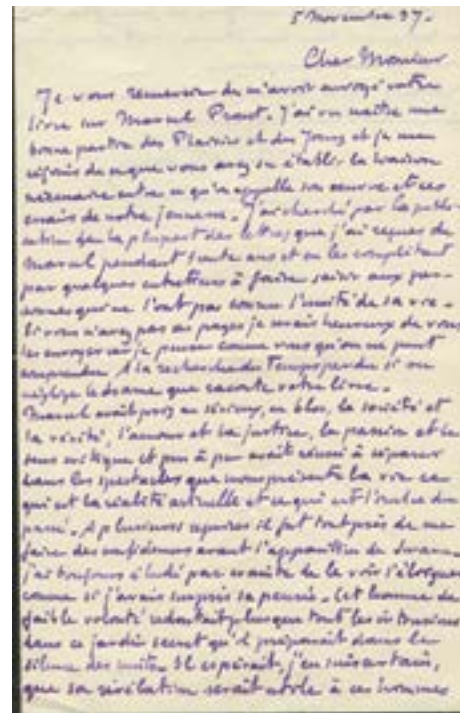 5 Novembre 37.
Cher Monsieur
Je vous remercie de m'avoir envoyé votre
livre sur Marcel Proust. J'ai vu naître une
bonne partie des Plaisirs et des Jours et je me
réjouis de ce que vous avez su établir la liaison
nécessaire entre ce qu'on appelle son œuvre et ces
essais de notre jeunesse. J'ai cherché par la publi-
cation de la plupart des lettres que j'ai reçues de
Marcel pendant trente ans et en les complétant
par quelques entretiens à faire saisir aux per-
sonnes qui ne l'ont pas connu l'unité de sa vie.
Si vous n'avez pas ces pages je serais heureux de vous
les envoyer car je pense comme vous qu'on ne peut
comprendre A la recherche du Temps perdu si on
néglige le drame que raconte votre livre.
Marcel avait pris au sérieux, en bloc, la société et
la vérité, l'amour et la justice, la passion et le
sens critique et peu à peu avait réussi à séparer
dans les spectacles que nous présente la vie ce
qui est la réalité actuelle et ce qui est l'ombre du
passé. A plusieurs reprises il fut tout près de me
faire des confidences avant l'apparition de Swann.
J'ai toujours éludé par crainte de le voir s'éloigner
comme si j'avais surpris sa pensée. Cet homme de
faible volonté redoutait plus que tout les intrusions
dans ce jardin secret qu'il préparait dans le
silence des nuits. Il espérait, j'en suis certain,
que sa révélation serait utile à ces hommes